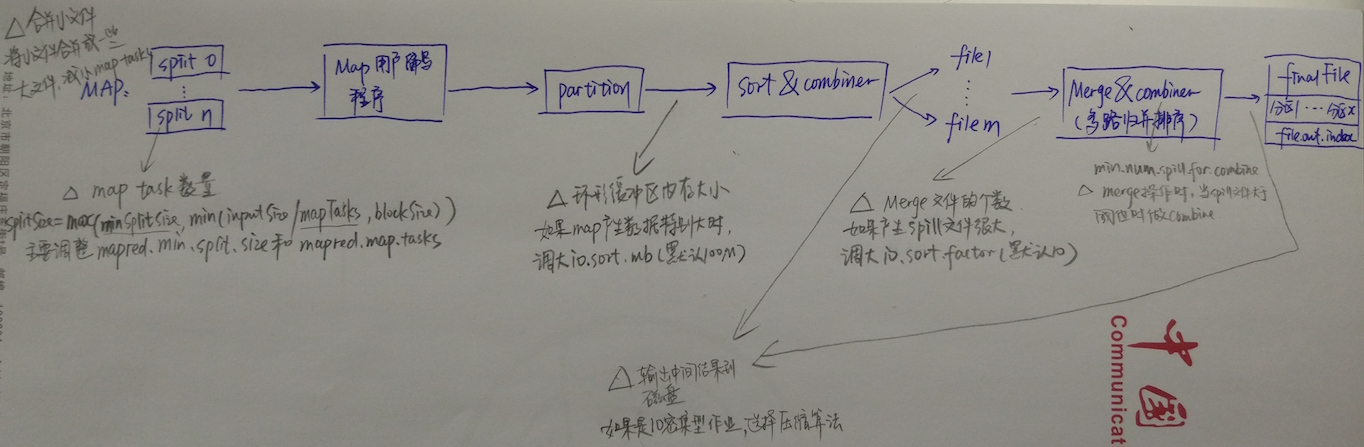 △ 合并小文件
将小文件合并成一些
大文件,减少map tasks
MAP:
split 0
⋮
split n
Map 用户编写
程序
partition
sort & combiner
file1
⋮
filem
Merge & combiner
(多路归并排序)
final File
分区1 ··· 分区x
file.out.index
△ map task 数量
splitSize = max(minSplitSize, min(inputSize/mapTasks, blockSize))
主要调整 mapred.min.split.size 和 mapred.map.tasks
△ 环形缓冲区内存大小
如果map产生数据特别大时,
调大io.sort.mb(默认100M)
△ Merge文件的个数
如果产生spill文件很大,
调大io.sort.factor(默认10)
min.num.spill.for.combine
△ merge操作时,当spill文件大于
阈值时做combine
△ 输出中间结果到
磁盘
如果是IO密集型作业,选择压缩算法
中国
Communicat
地址:北京市朝阳区定福庄